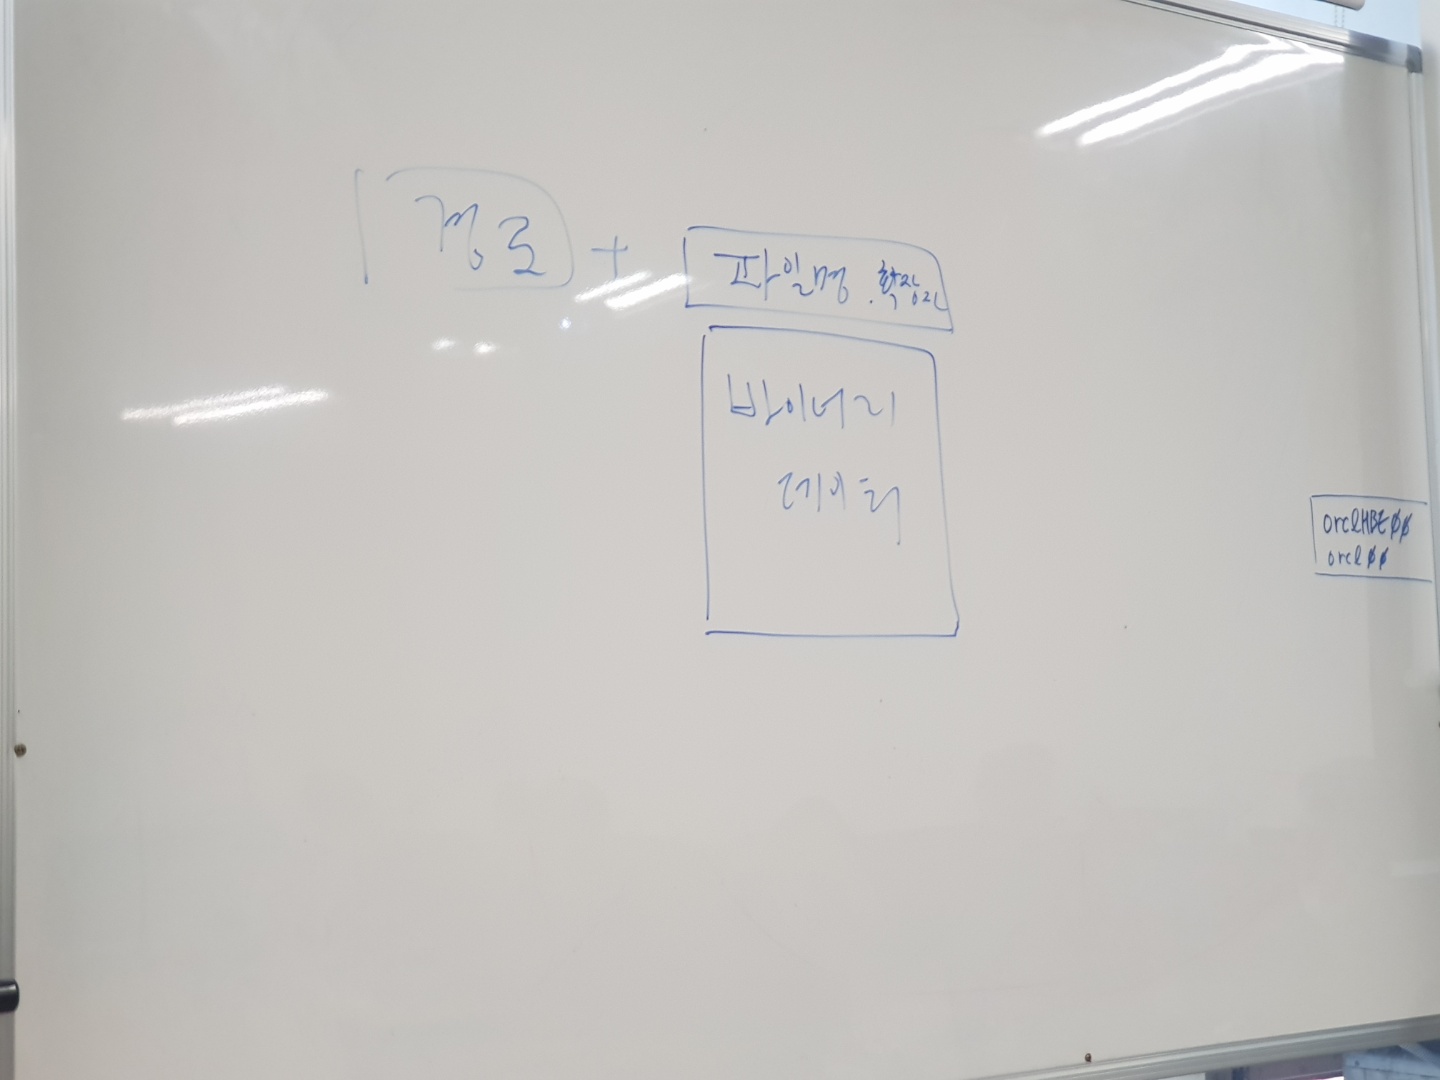 경로 + 파일명 .확장자
바이너리
데이터
orclHBE00
orcl00